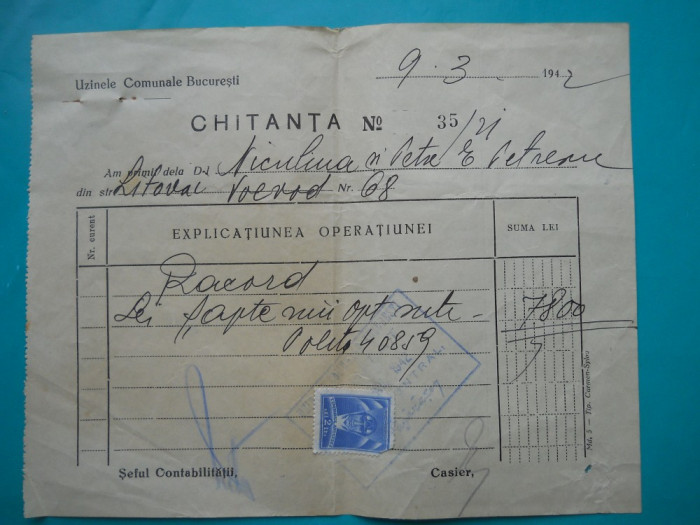 Uzinele Comunale București
9 . 3 . 1942
CHITANȚA № 35/21
Am primit dela D-l Niculina și Petre E Petrescu
din str. Litovoi Voevod Nr. 68
Nr. curent
EXPLICAȚIUNEA OPERAȚIUNEI
SUMA LEI
Racord
Lei șapte mii opt sute - 7800
Polița 40859
Șeful Contabilității,
Casier,